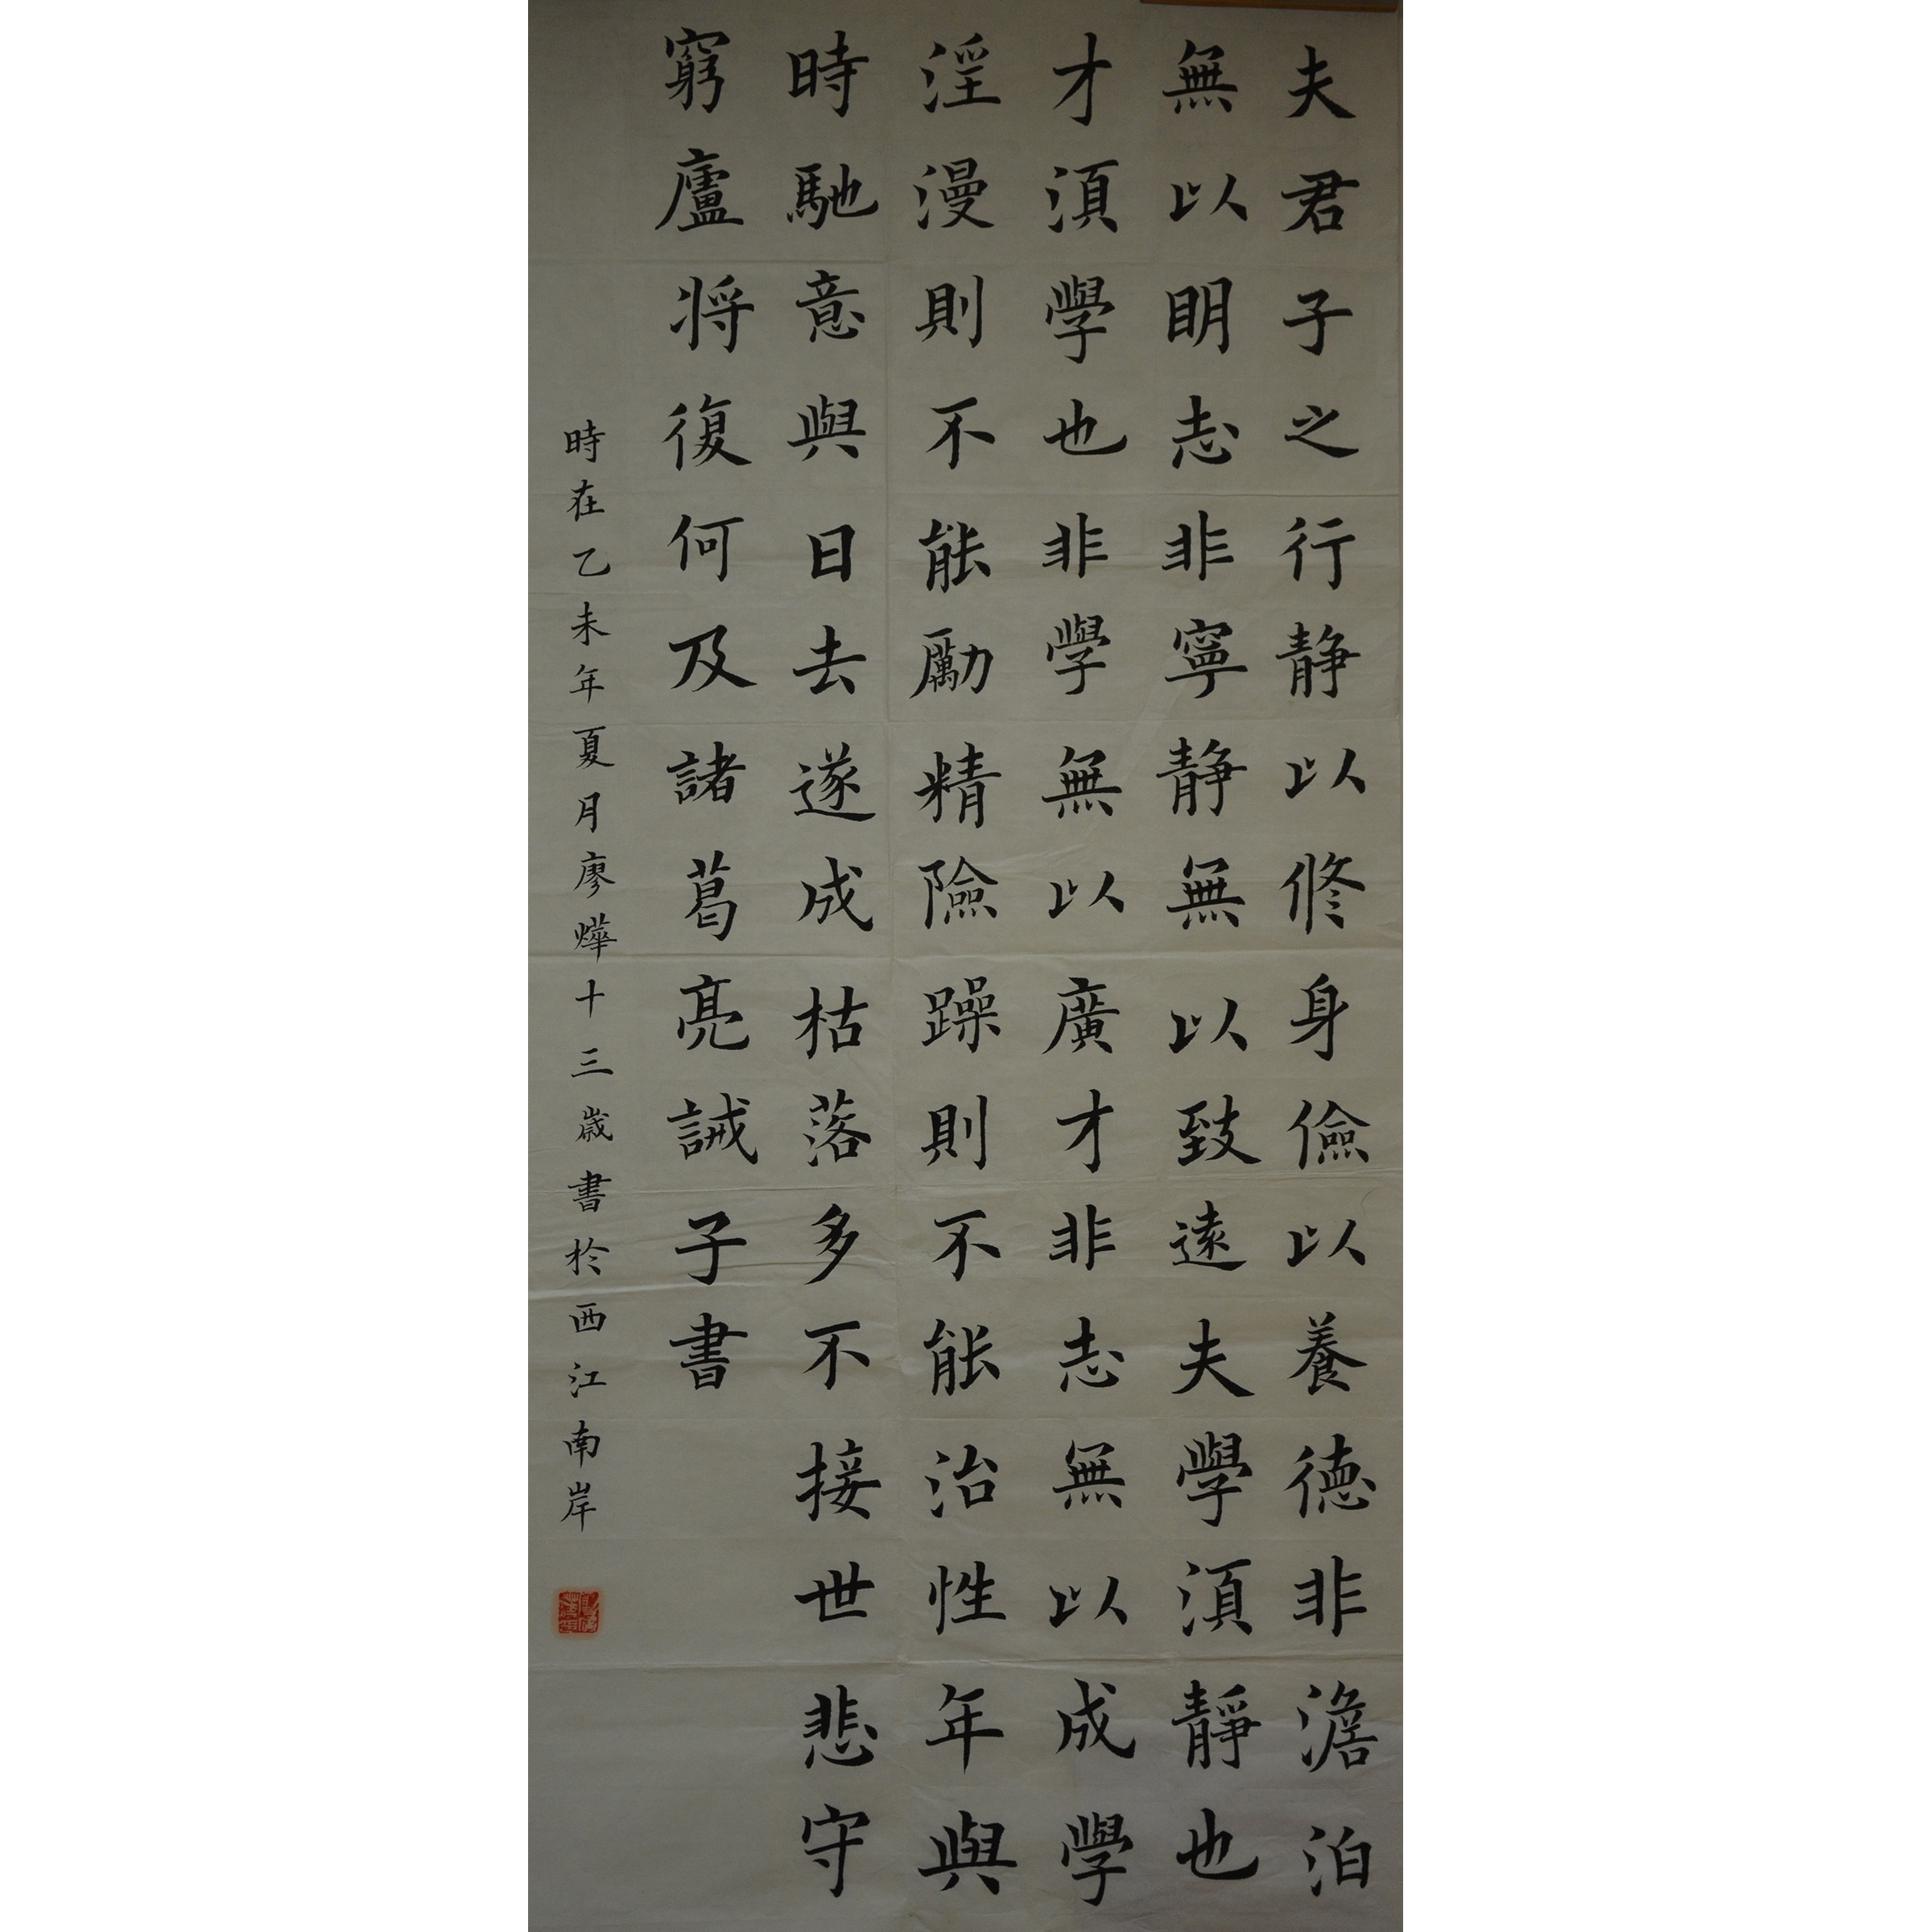 夫君子之行静以修身儉以養德非澹泊
無以眀志非寧静無以致遠夫學湏靜也
才湏學也非學無以廣才非志無以成學
淫漫則不能勵精險躁則不能治性年與
時馳意與日去遂成枯落多不接世悲守
窮廬将復何及諸葛亮誡子書
時在乙未年夏月廖燁十三歲書於西江南岸